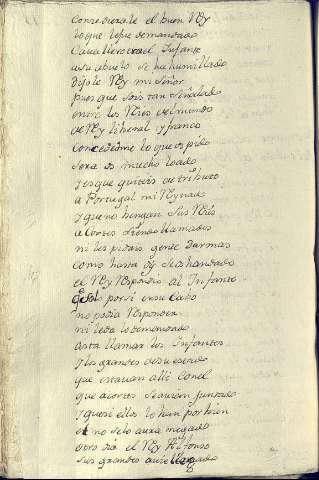 concedierale el buen Rey
lo que le fue demandado
Cavallero era el Infante
a su abuelo se ha humillado
dijole Rey mi Señor
pues que sois tan señalado
entre los Reies del mundo
de Rey liberal y franco
concededme lo que os pido
sera os mucho loado
y es que quiteis de tributo
a Portugal mi Reynado
y que no hengan sus Reies
a Cortes siendo llamados
ni les pidais gente darmas
como hasta oy se ha handado
el Rey Respondio al Infante
qel solo por si en su cabo
no podia Responder
ni lo da lo demandado
asta llamar los Infantes
y los grandes de su estado
que estauan alli con el
que a cortes se auien juntado
y que si ellos lo han por bien
el no se lo aura negado
otro dia el Rey Alfonso
sus grandes auie llegado